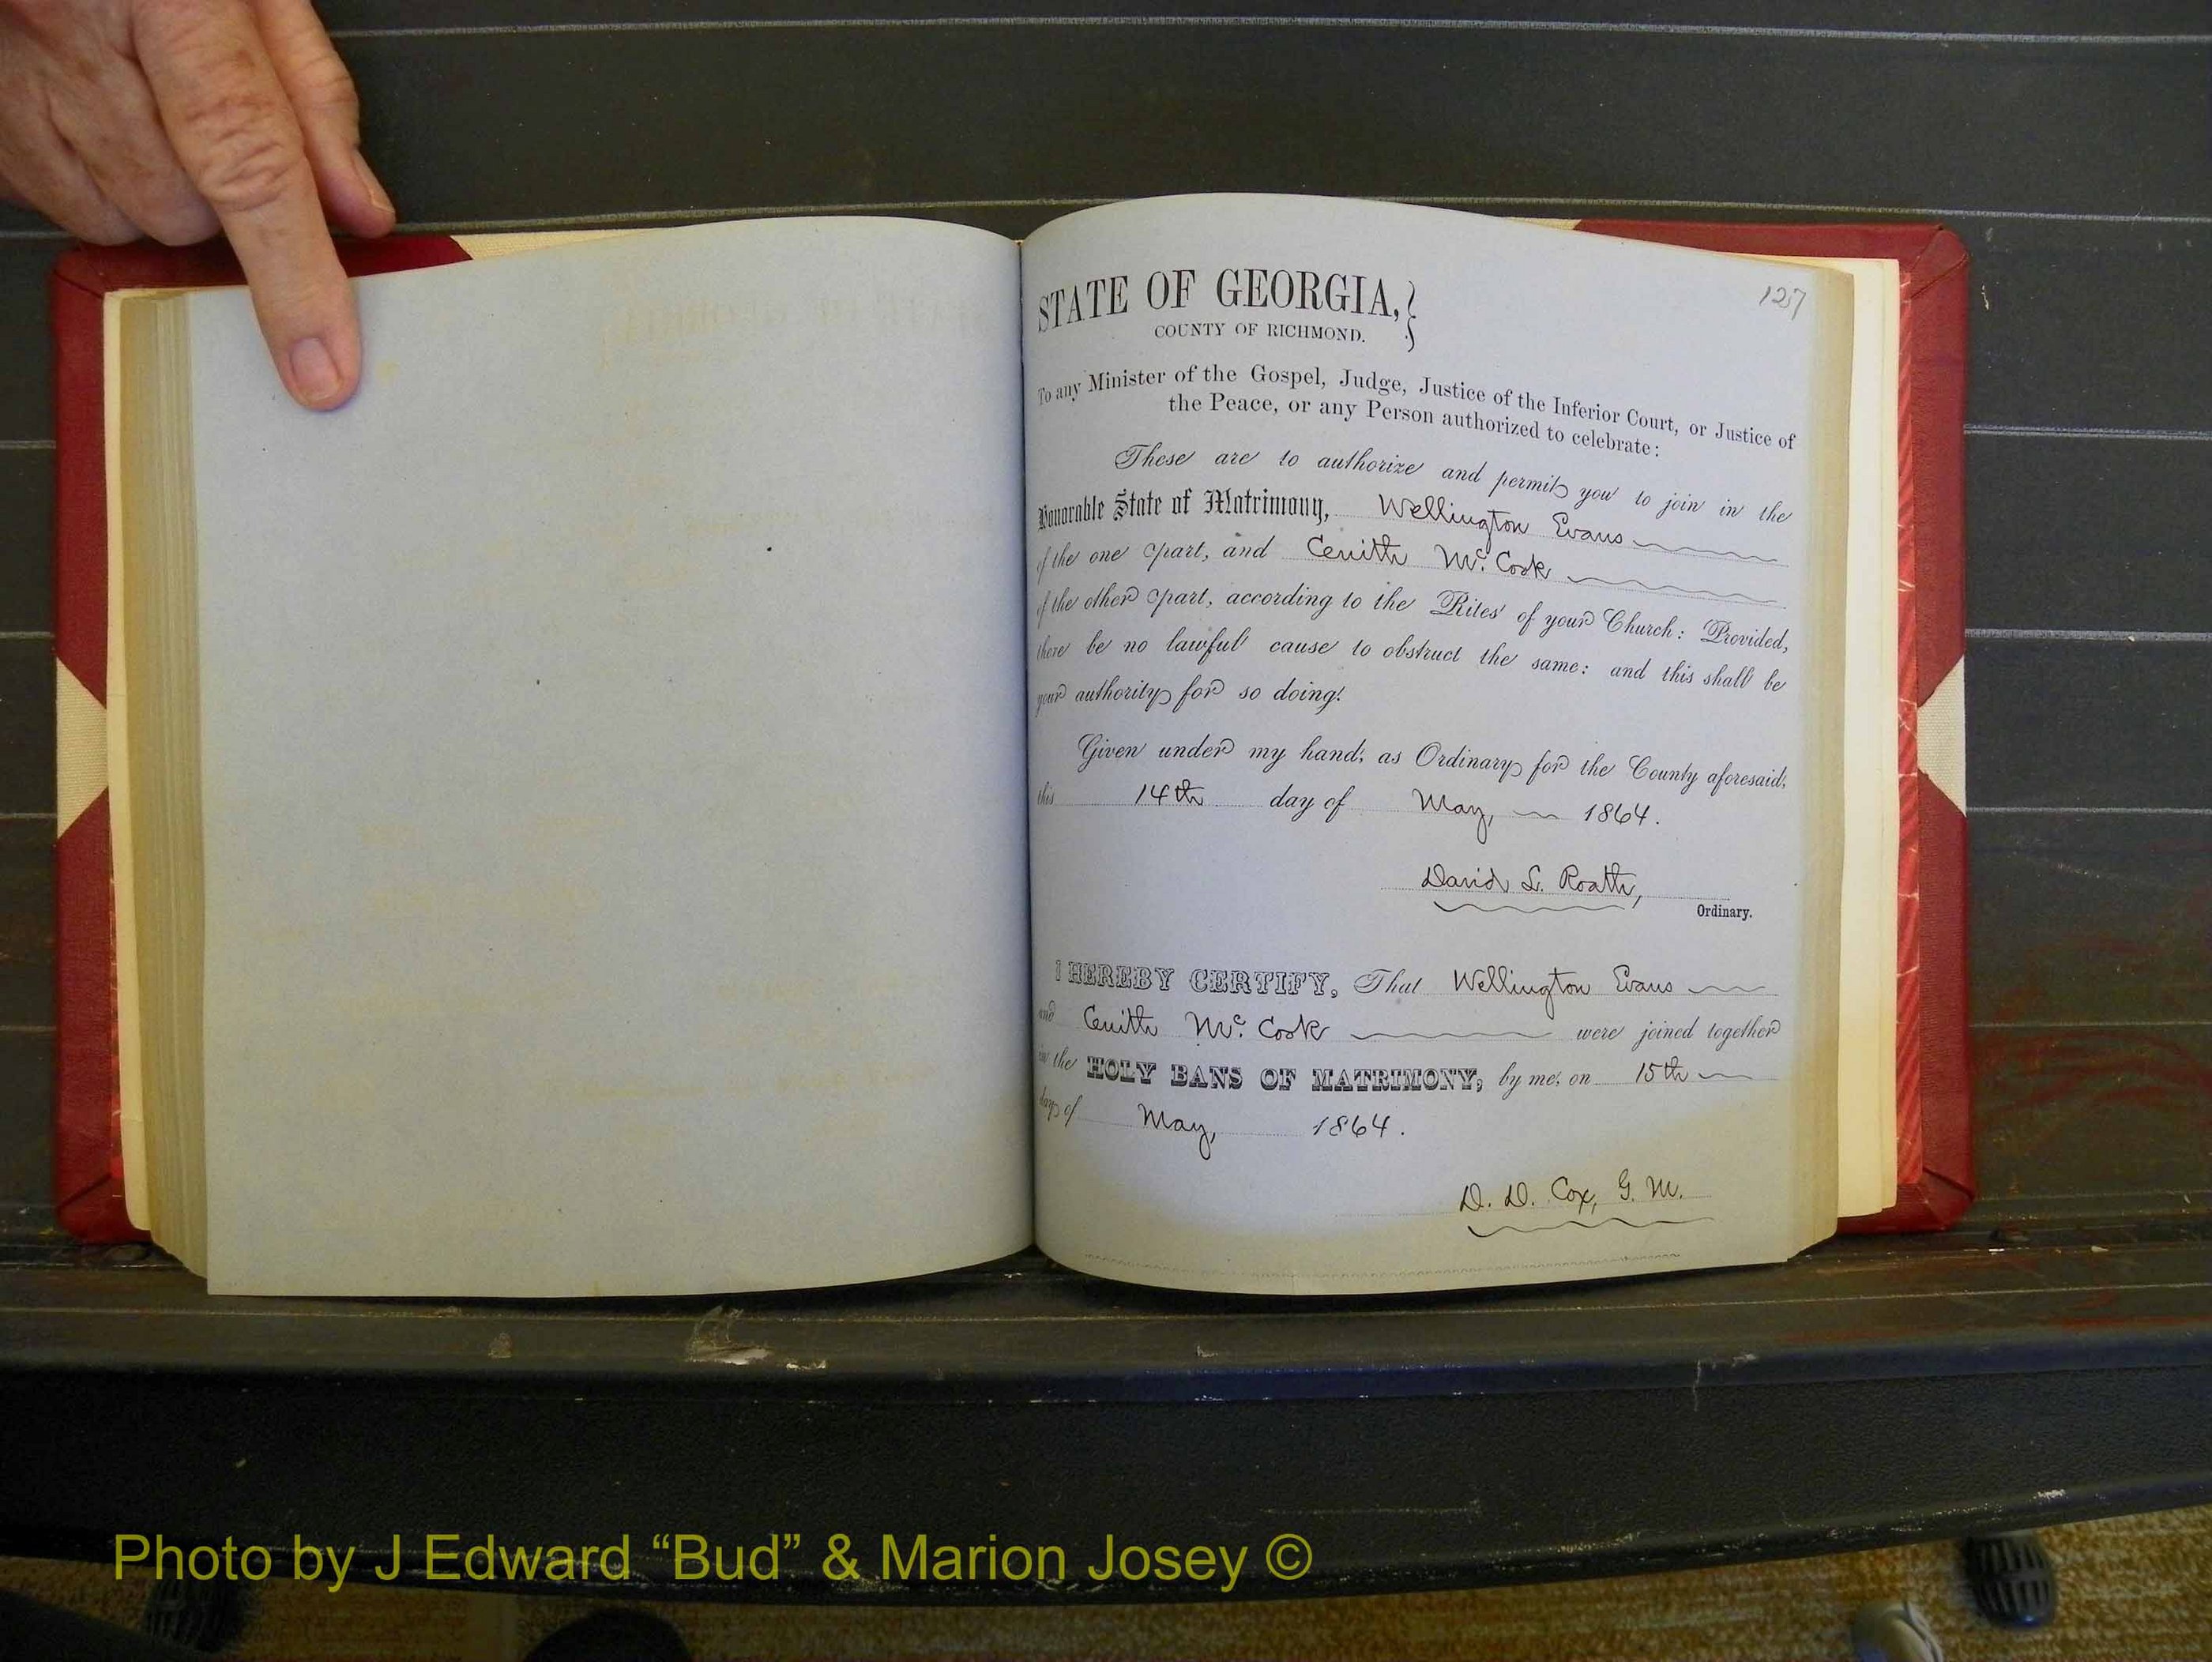 127
STATE OF GEORGIA,
COUNTY OF RICHMOND.
To any Minister of the Gospel, Judge, Justice of the Inferior Court, or Justice of
the Peace, or any Person authorized to celebrate:
These are to authorize and permit you to join in the
Honorable State of Matrimony, Wellington Evans
of the one part, and Cenith Mc. Cook
of the other part, according to the Rites of your Church: Provided,
there be no lawful cause to obstruct the same: and this shall be
your authority for so doing.
Given under my hand, as Ordinary for the County aforesaid,
this 14th day of May, 1864.
David L. Roath,
Ordinary.
I HEREBY CERTIFY, That Wellington Evans
and Cenith Mc. Cook were joined together
in the HOLY BANS OF MATRIMONY, by me, on 15th
day of May, 1864.
D. D. Cox, G. M.
Photo by J Edward “Bud” & Marion Josey ©